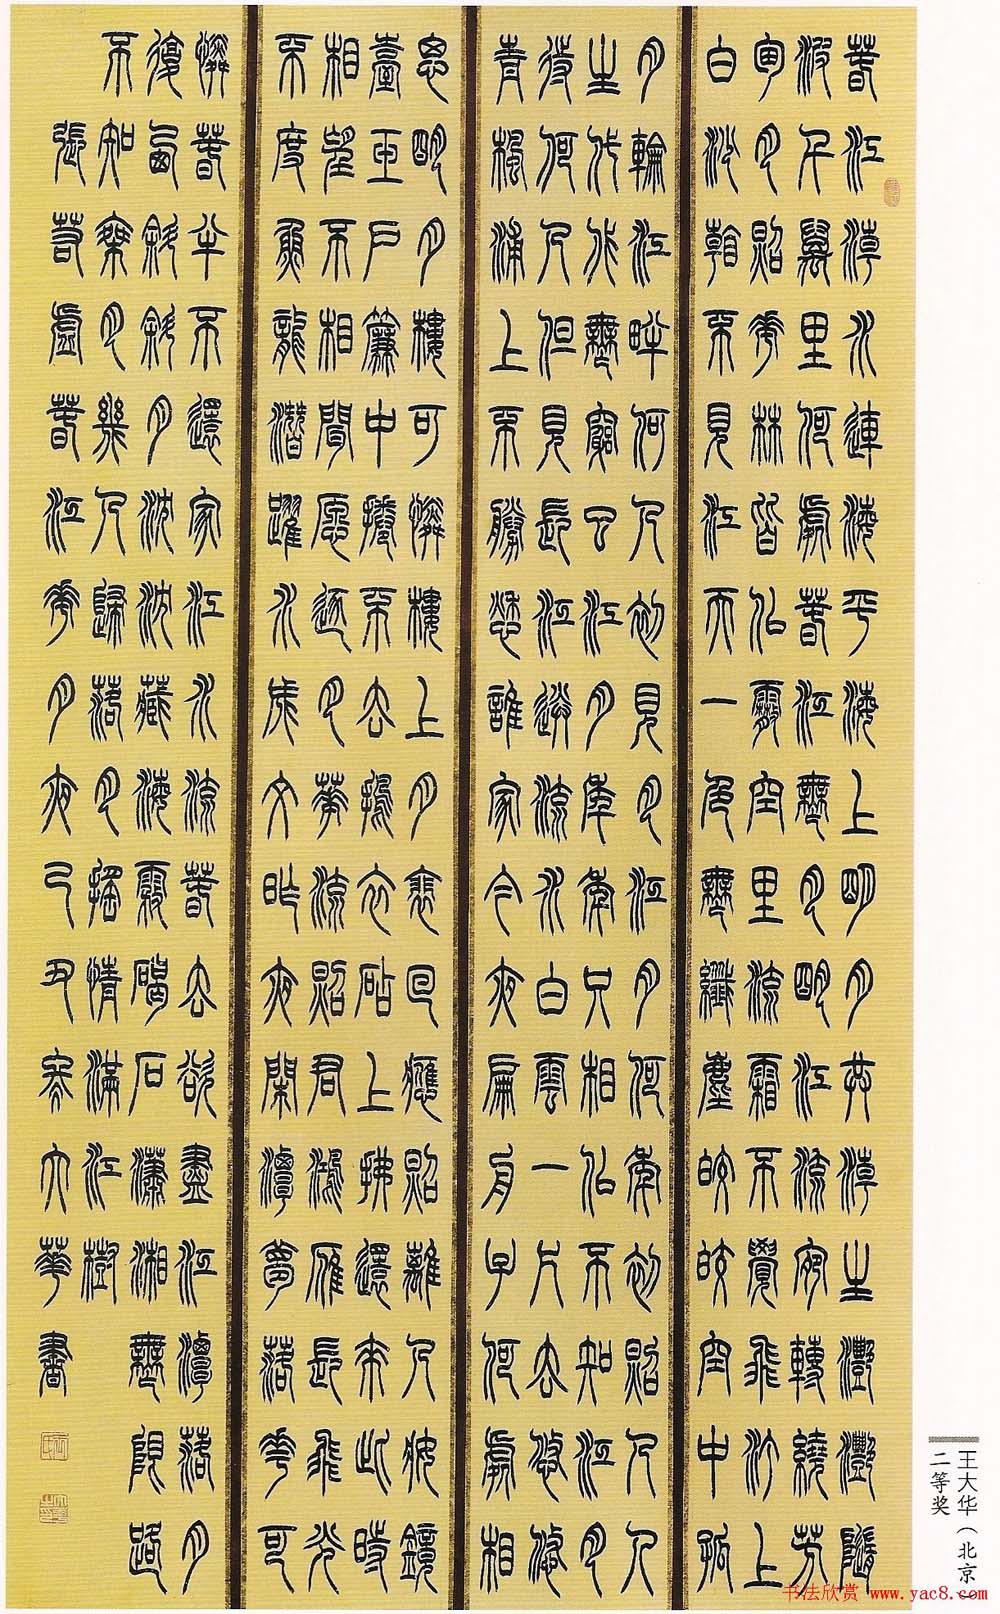 春江潮水連海平海上明月共潮生灩灩隨
波千萬里何處春江無月明江流宛轉繞芳
甸月照花林皆似霰空里流霜不覺飛汀上
白沙看不見江天一色無纖塵皎皎空中孤
月輪江畔何人初見月江月何年初照人人
生代代無窮已江月年年只相似不知江月
待何人但見長江送流水白雲一片去悠悠
青楓浦上不勝愁誰家今夜扁舟子何處相
思明月樓可憐樓上月裵回應照離人妝鏡
臺玉戶簾中捲不去擣衣砧上拂還來此時
相望不相聞願逐月華流照君鴻雁長飛光
不度魚龍潛躍水成文昨夜閑潭夢落花可
憐春半不還家江水流春去欲盡江潭落月
復西斜斜月沈沈藏海霧碣石瀟湘無限路
不知乘月幾人歸落月搖情滿江樹
張若虛春江花月夜己丑大華書
王大华（北京）
二等奖
书法欣赏 www.yac8.com